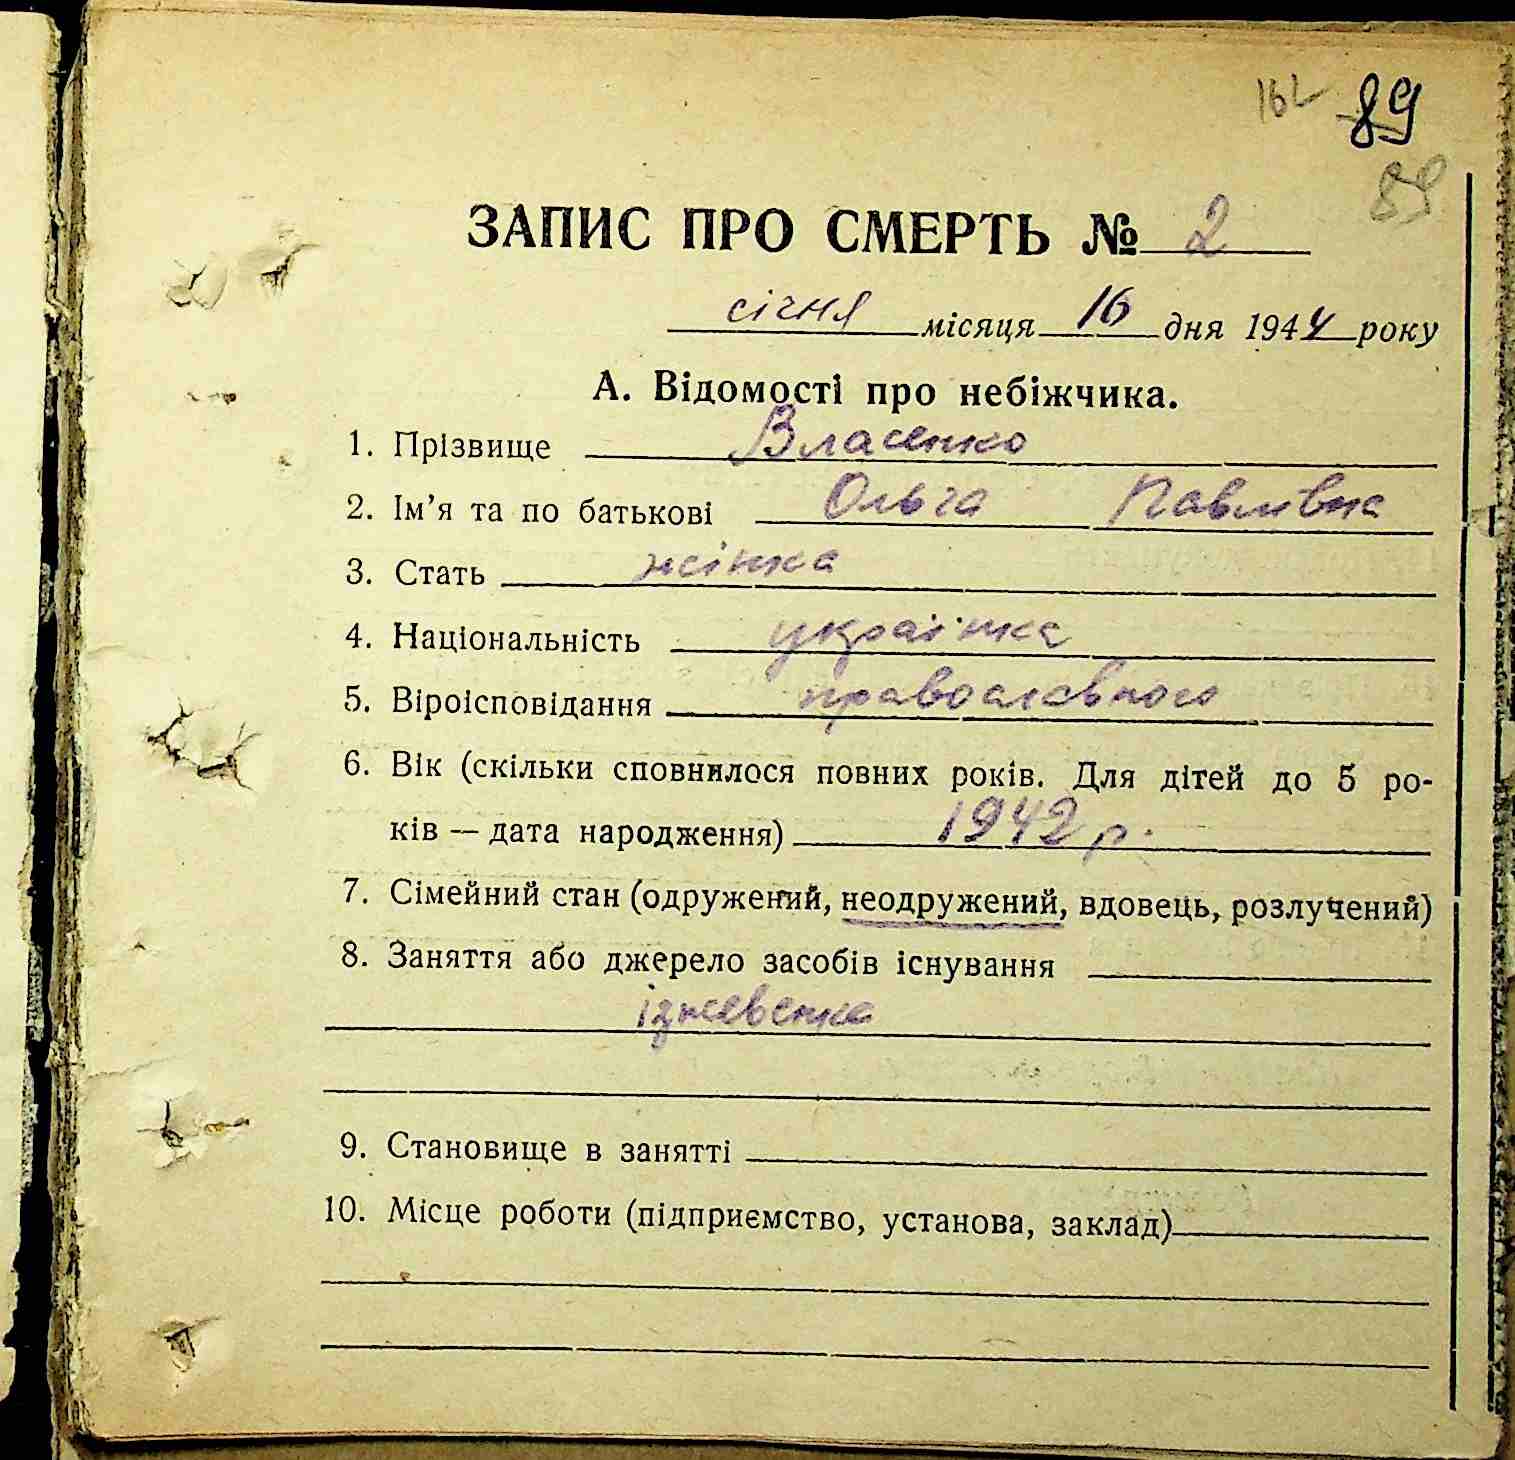 162 89
89
ЗАПИС ПРО СМЕРТЬ № 2
січня місяця 16 дня 1944 року
А. Відомості про небіжчика.
1. Прізвище Власенко
2. Ім'я та по батькові Ольга Павлівна
3. Стать жінка
4. Національність українка
5. Віроісповідання православного
6. Вік (скільки сповнилося повних років. Для дітей до 5 ро-
ків — дата народження) 1942 р.
7. Сімейний стан (одружений, неодружений, вдовець, розлучений)
8. Заняття або джерело засобів існування
ізжевенка
9. Становище в занятті
10. Місце роботи (підприємство, установа, заклад)